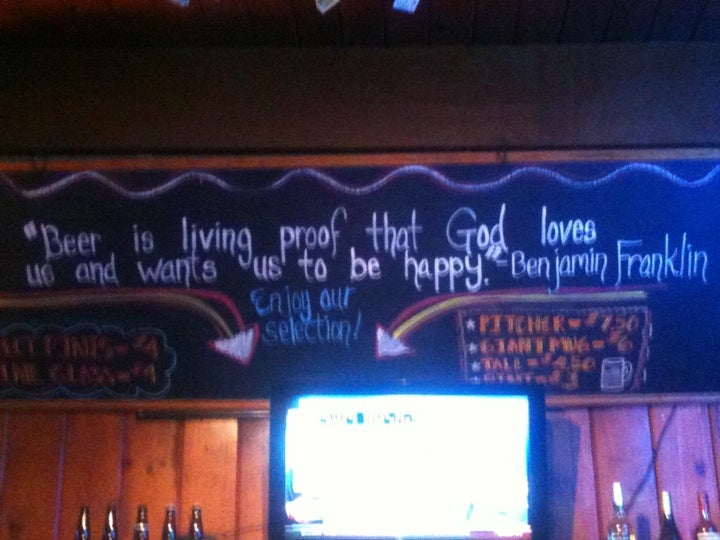 "Beer is living proof that God loves
us and wants us to be happy."-Benjamin Franklin
Enjoy our
selection!
PINTS=$4
GLASS=$4
★ PITCHER=$7.50
★ GIANT MUG=$6
★ TALL=$4.50